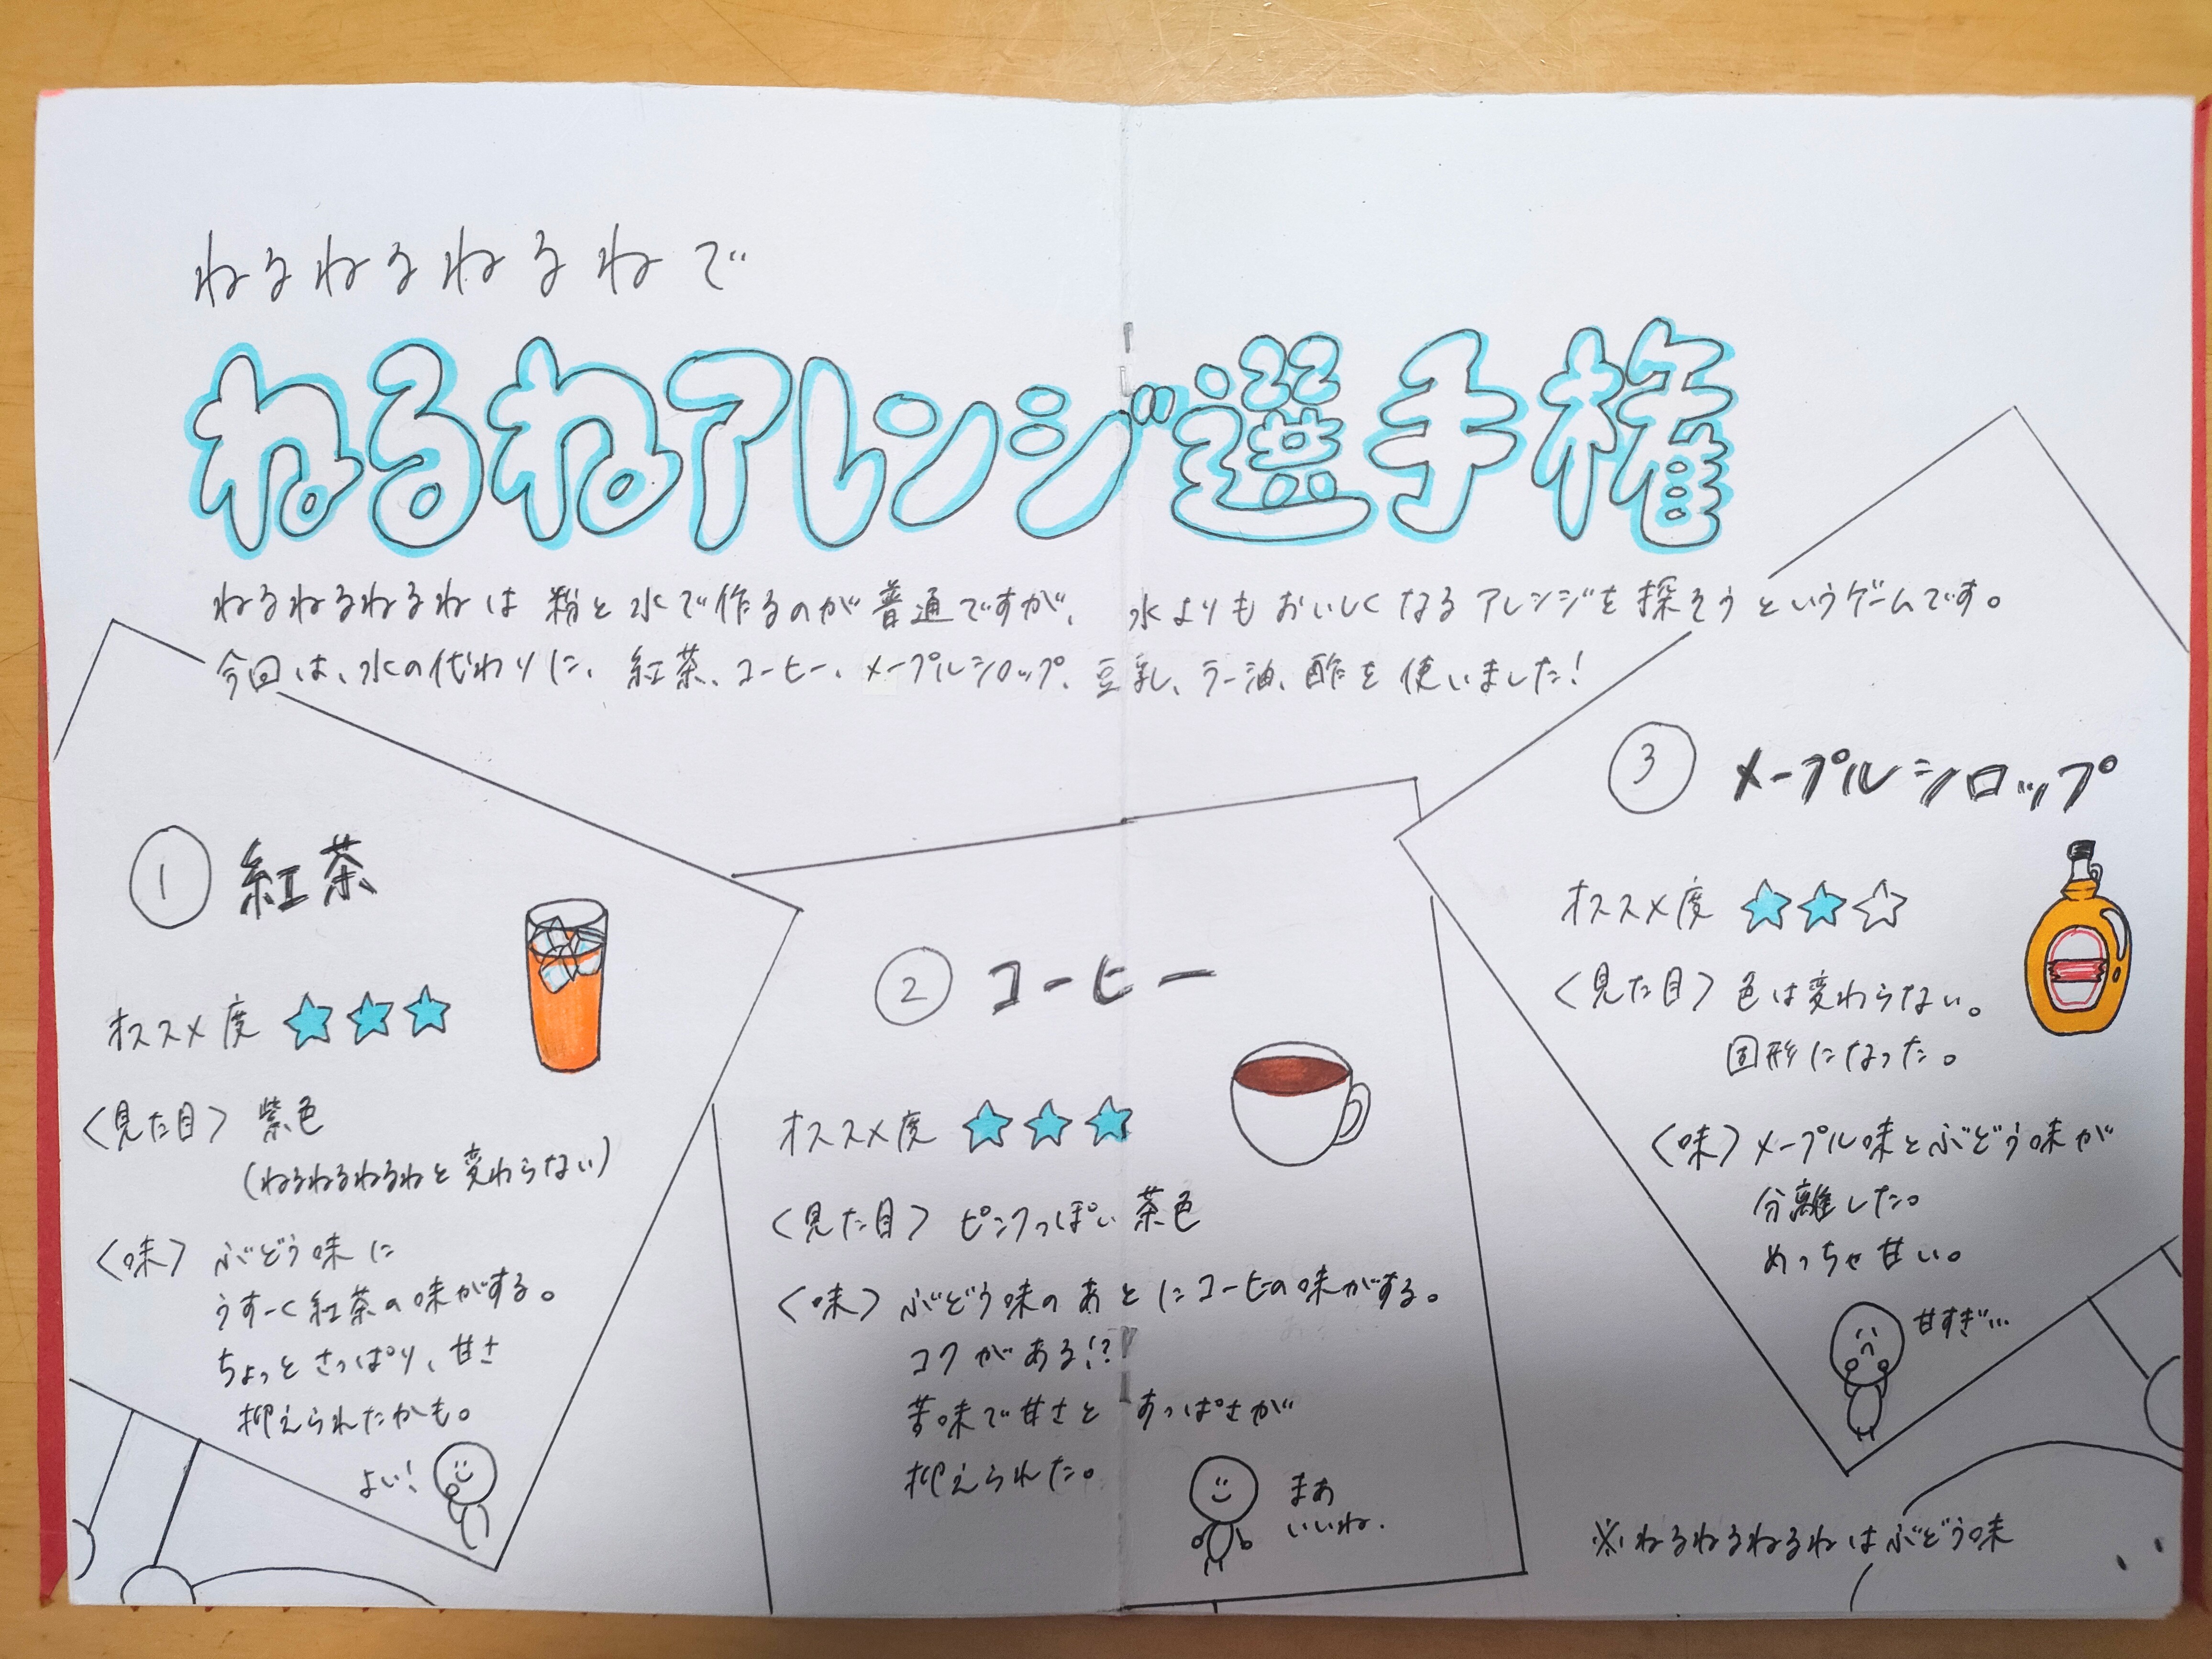 ねるねるねるねで
ねるねアレンジ選手権
ねるねるねるねは粉と水で作るのが普通ですが、水よりもおいしくなるアレンジを探そうというゲームです。
今回は、水の代わりに、紅茶、コーヒー、メープルシロップ、豆乳、ラー油、酢を使いました!
① 紅茶
オススメ度 ★★★
〈見た目〉紫色
(ねるねるねるねと変わらない)
〈味〉ぶどう味に
うすーく紅茶の味がする。
ちょっとさっぱり、甘さ
抑えられたかも。
よい!
② コーヒー
オススメ度 ★★★
〈見た目〉ピンクっぽい茶色
〈味〉ぶどう味のあとにコーヒーの味がする。
コクがある!?
苦味で甘さとすっぱさが
抑えられた。
まあ
いいね.
③ メープルシロップ
オススメ度 ★★☆
〈見た目〉色は変わらない。
固形になった。
〈味〉メープル味とぶどう味が
分離した。
めっちゃ甘い。
甘すぎ…
※ねるねるねるねはぶどう味